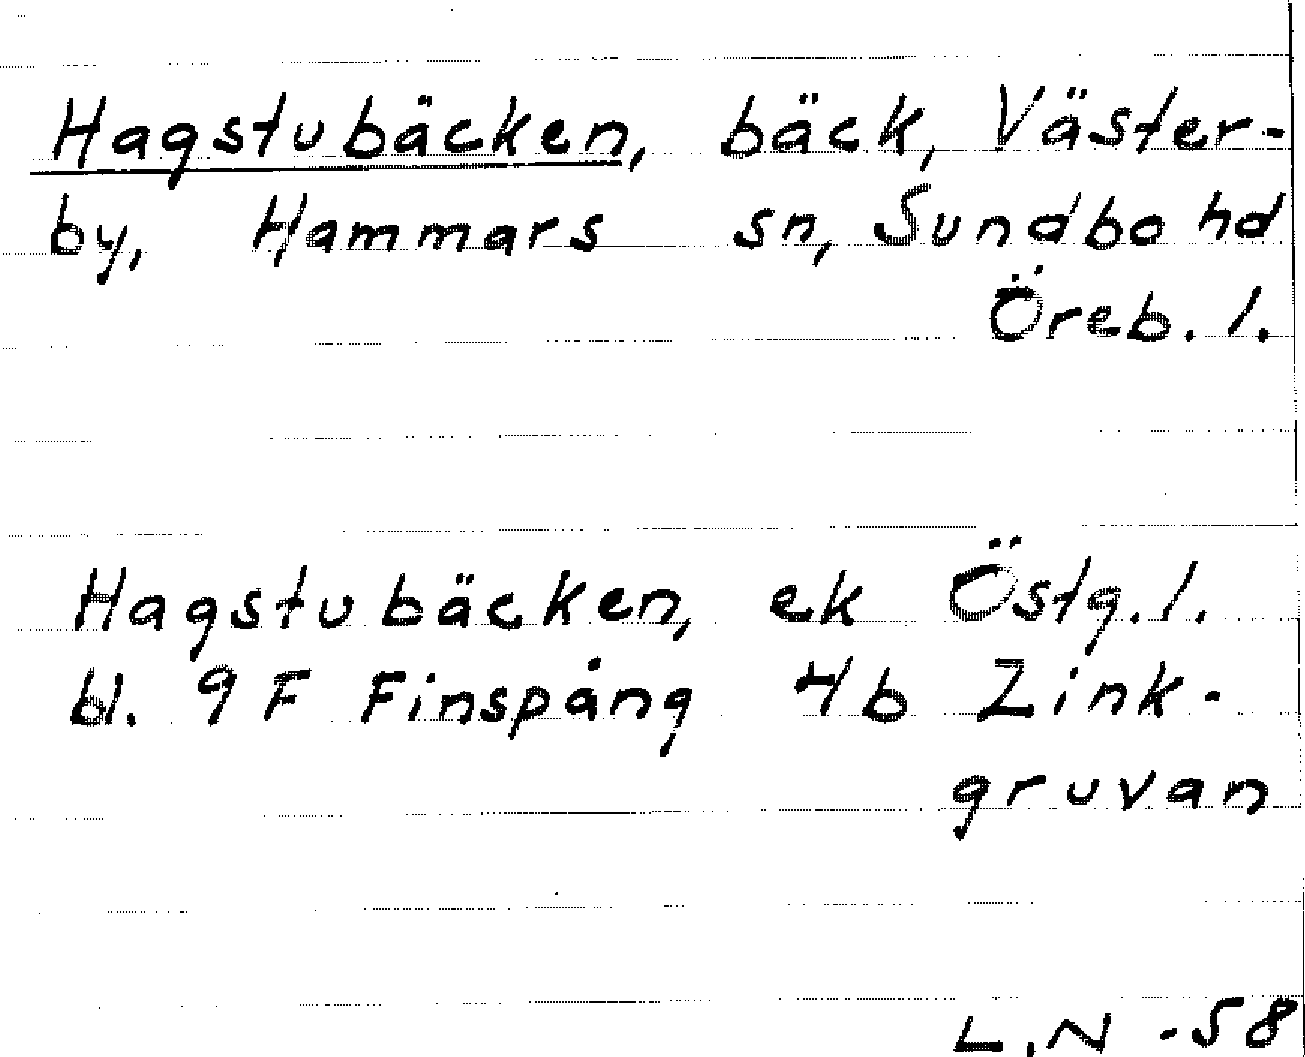 Hagstubäcken, bäck, Väster-
by, Hammars sn, Sundbo hd
Öreb. l.
Hagstubäcken, ek Östg. l.
bl. 9F Finspång 4b Zink-
gruvan
L.N -58